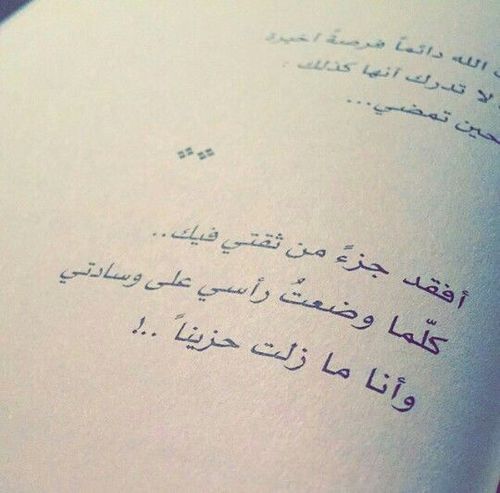 الله دائماً فرصةً أخيرة
لا تدرك أنها كذلك .
حين تمضي...
أفقد جزءً من ثقتي فيك..
كلّما وضعتُ رأسي على وسادتي
وأنا ما زلت حزيناً ..!